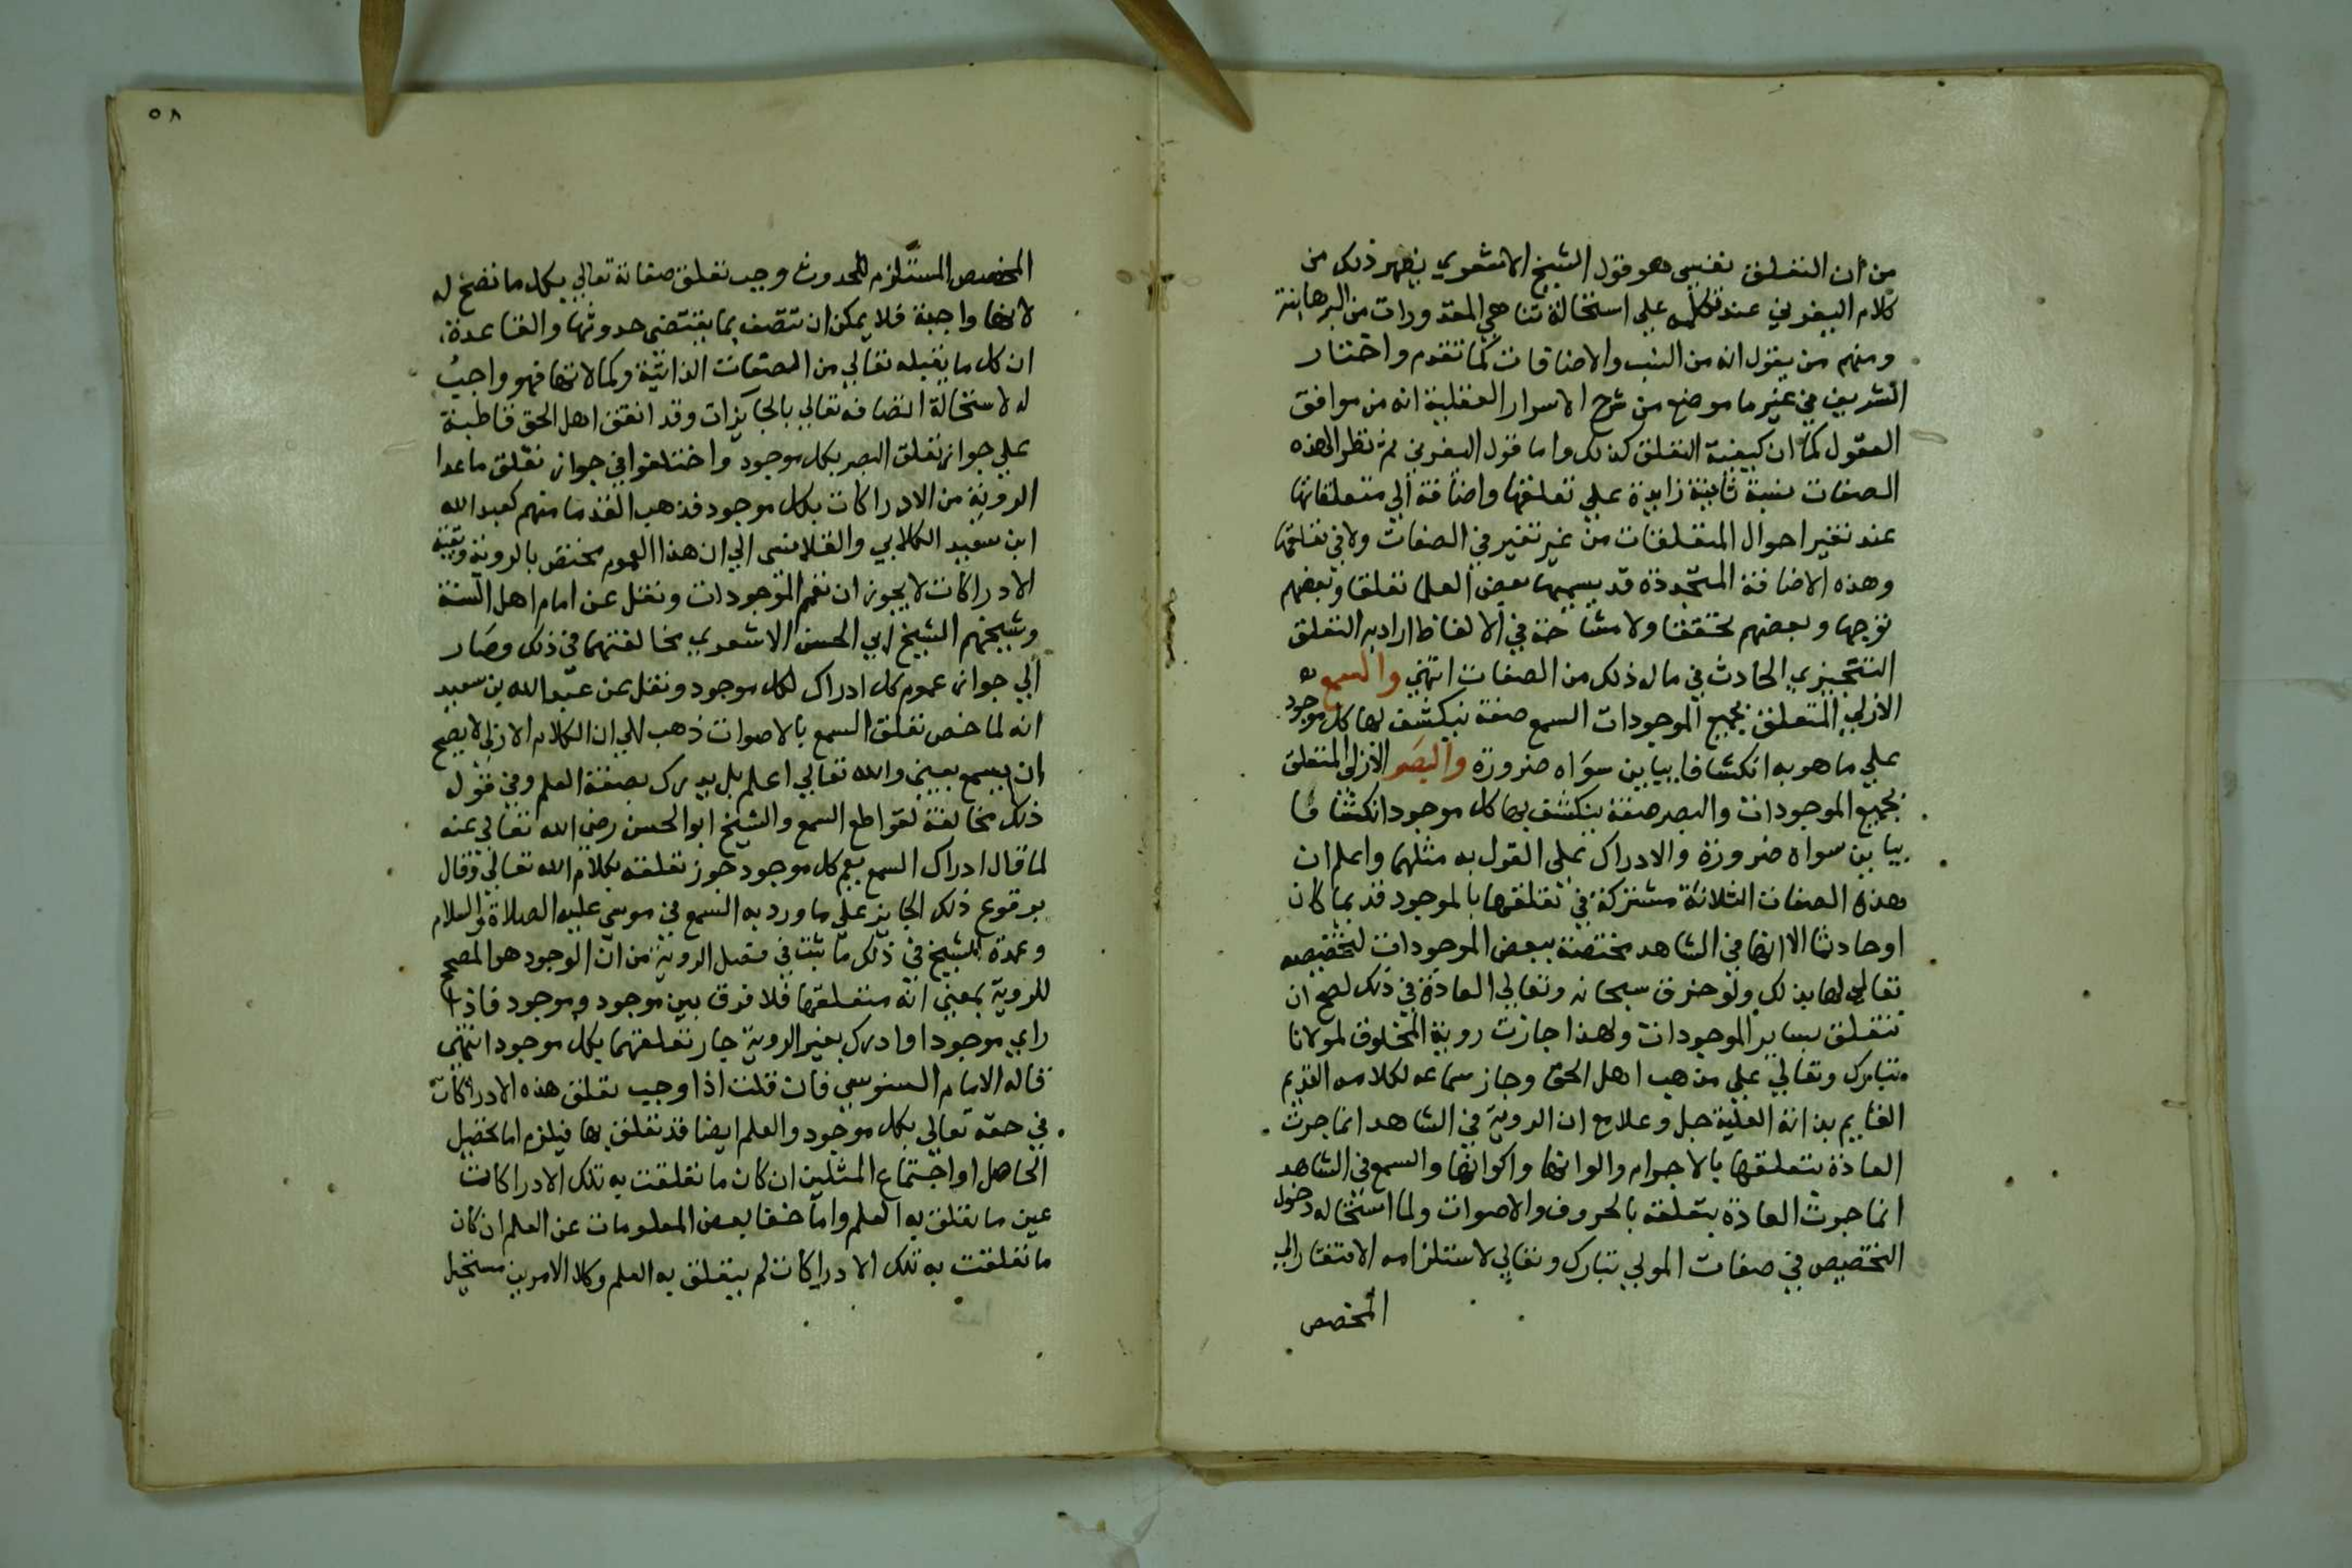 من ان التعلق نفسى هو قول الشيخ الاشعري يظهر ذلك من
كلام اليفرني عند تكلمه علي استحالة تناهي المقدورات من البرهانية
ومنهم من يقول انه من النسب والاضافات كما تقدم واختار
الشريف في غير ما موضع من شرح الاسرار العقلية انه من مواقف
العقول كما ان كيفية التعلق كذلك واما قول اليفرني ثم تطرا لهذه
الصفات نسبة ثابتة زايدة علي تعلقها واضافة الي متعلقاتها
عند تغير احوال المتعلقات من غير تغير في الصفات ولا في تعلقها
وهذه الاضافة المتجددة قد يسميها بعض العلما تعلقا وبعضهم
توجها وبعضهم تحققا ولا مشاحة في الالفاظ اراد به التعلق
التنجيزي الحادث في ماله ذلك من الصفات انتهي والسمع
الازلي المتعلق بجميع الموجودات السمع صفة ينكشف بها كل موجود
علي ما هو به انكشافا يباين سواه ضرورة والبصر الازلي المتعلق
بجميع الموجودات والبصر صفة ينكشف بها كل موجود انكشافا
يباين سواه ضرورة والادراك علي القول به مثلهما واعلم ان
هذه الصفات الثلاثة مشتركة في تعلقها بالموجود قديما كان
او حادثا الا انها في الشاهد مختصة ببعض الموجودات لتخصيصه
تعالي لها بذلك ولو خرق سبحانه وتعالي العادة في ذلك لصح ان
تتعلق بساير الموجودات ولهذا جازت روية المخلوق لمولانا
تبارك وتعالي علي مذهب اهل الحق وجاز سماعه لكلامه القديم
القايم بذاته العلية جل وعلا مع ان الروية في الشاهد انما جرت
العادة بتعلقها بالاجرام والوانها واكوانها والسمع في الشاهد
انما جرت العادة بتعلقه بالحروف والاصوات ولما استحاله دخول
التخصيص في صفات المولي تبارك وتعالي لاستلزامه الافتقار الي
المخصص
٥٨
المخصص المستلزم للحدوث وجب تعلق صفاته تعالي بكل ما تصح له
لانها واجبة فلا يمكن ان تتصف بما يقتضى حدوثها والقاعدة
ان كل ما يقبله تعالي من الصفات الذاتية وكمالاتها فهو واجب
له لاستحالة اتصافه تعالي بالجايزات وقد اتفق اهل الحق قاطبة
علي جواز تعلق البصر بكل موجود واختلفوا في جواز تعلق ما عدا
الروية من الادراكات بكل موجود فذهب القدما منهم كعبد الله
ابن سعيد الكلابي والقلانسى الي ان هذا العموم مختص بالروية وبقية
الادراكات لا يجوز ان تعم الموجودات ونقل عن امام اهل السنة
وشيخهم الشيخ ابي الحسن الاشعري مخالفتهما في ذلك وصار
الي جواز عموم كل ادراك لكل موجود ونقل عن عبد الله بن سعيد
انه لما خص تعلق السمع بالاصوات ذهب الي ان الكلام الازلي لا يصح
ان يسمع يعني والله تعالي اعلم بل يدرك بصفة العلم وفي قوله
ذلك مخالفة لقواطع السمع والشيخ ابو الحسن رضي الله تعالي عنه
لما قال ادراك السمع يعم كل موجود جوز تعلقه بكلام الله تعالي وقال
بوقوع ذلك الجايز علي ما ورد به السمع في موسي عليه الصلاة والسلام
وعمدة الشيخ في ذلك ما ثبت في فصل الروية من ان الوجود هو المصحح
للروية بمعني انه متعلقها فلا فرق بين موجود وموجود فاذا
راي موجودا وادرك بغير الروية جاز تعلقهما بكل موجود انتهى
قاله الامام السنوسي فان قلت اذا وجب تعلق هذه الادراكات
في حقه تعالي بكل موجود والعلم ايضا قد تعلق بها فيلزم اما تحصيل
الحاصل او اجتماع المثلين ان كان ما تعلقت به تلك الادراكات
عين ما تعلق به العلم واما خفا بعض المعلومات عن العلم ان كان
ما تعلقت به تلك الادراكات لم يتعلق به العلم وكلا الامرين مستحيل